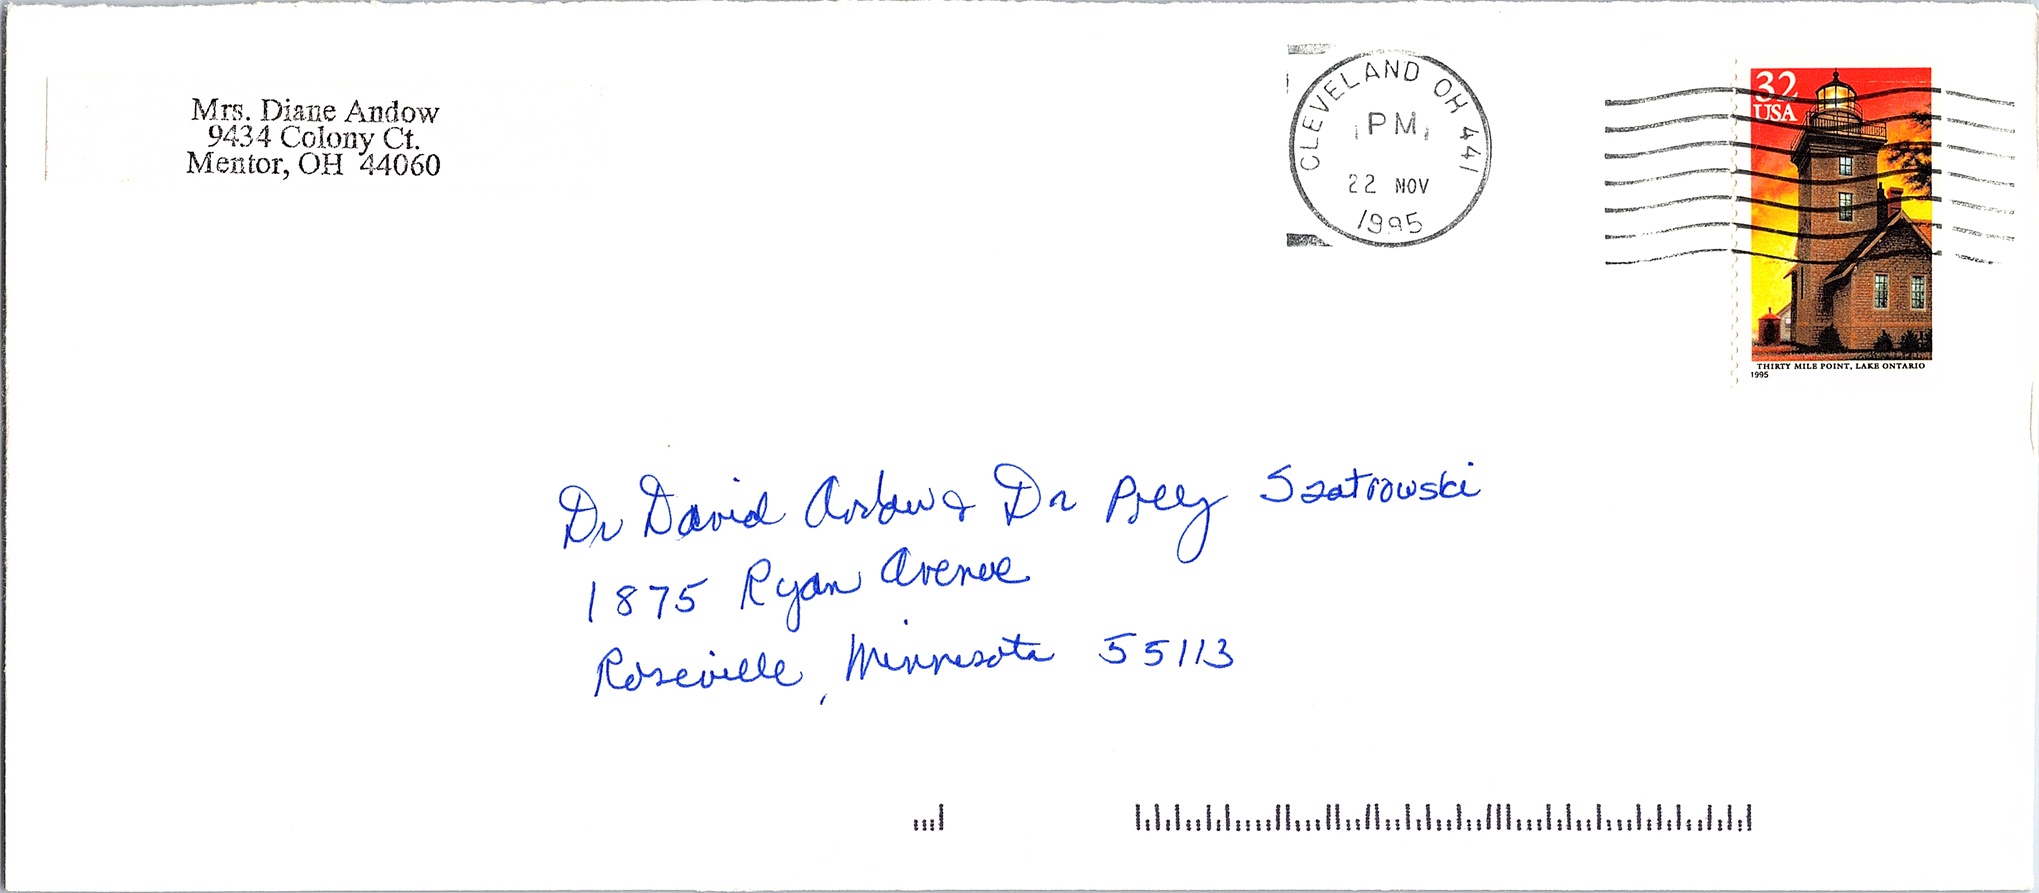 Mrs. Diane Andow
9434 Colony Ct.
Mentor, OH 44060
CLEVELAND OH 441
PM
22 NOV
1995
32
USA
THIRTY MILE POINT, LAKE ONTARIO
1995
Dr David Andow & Dr Polly Szatrowski
1875 Ryan Avenue
Roseville, Minnesota 55113